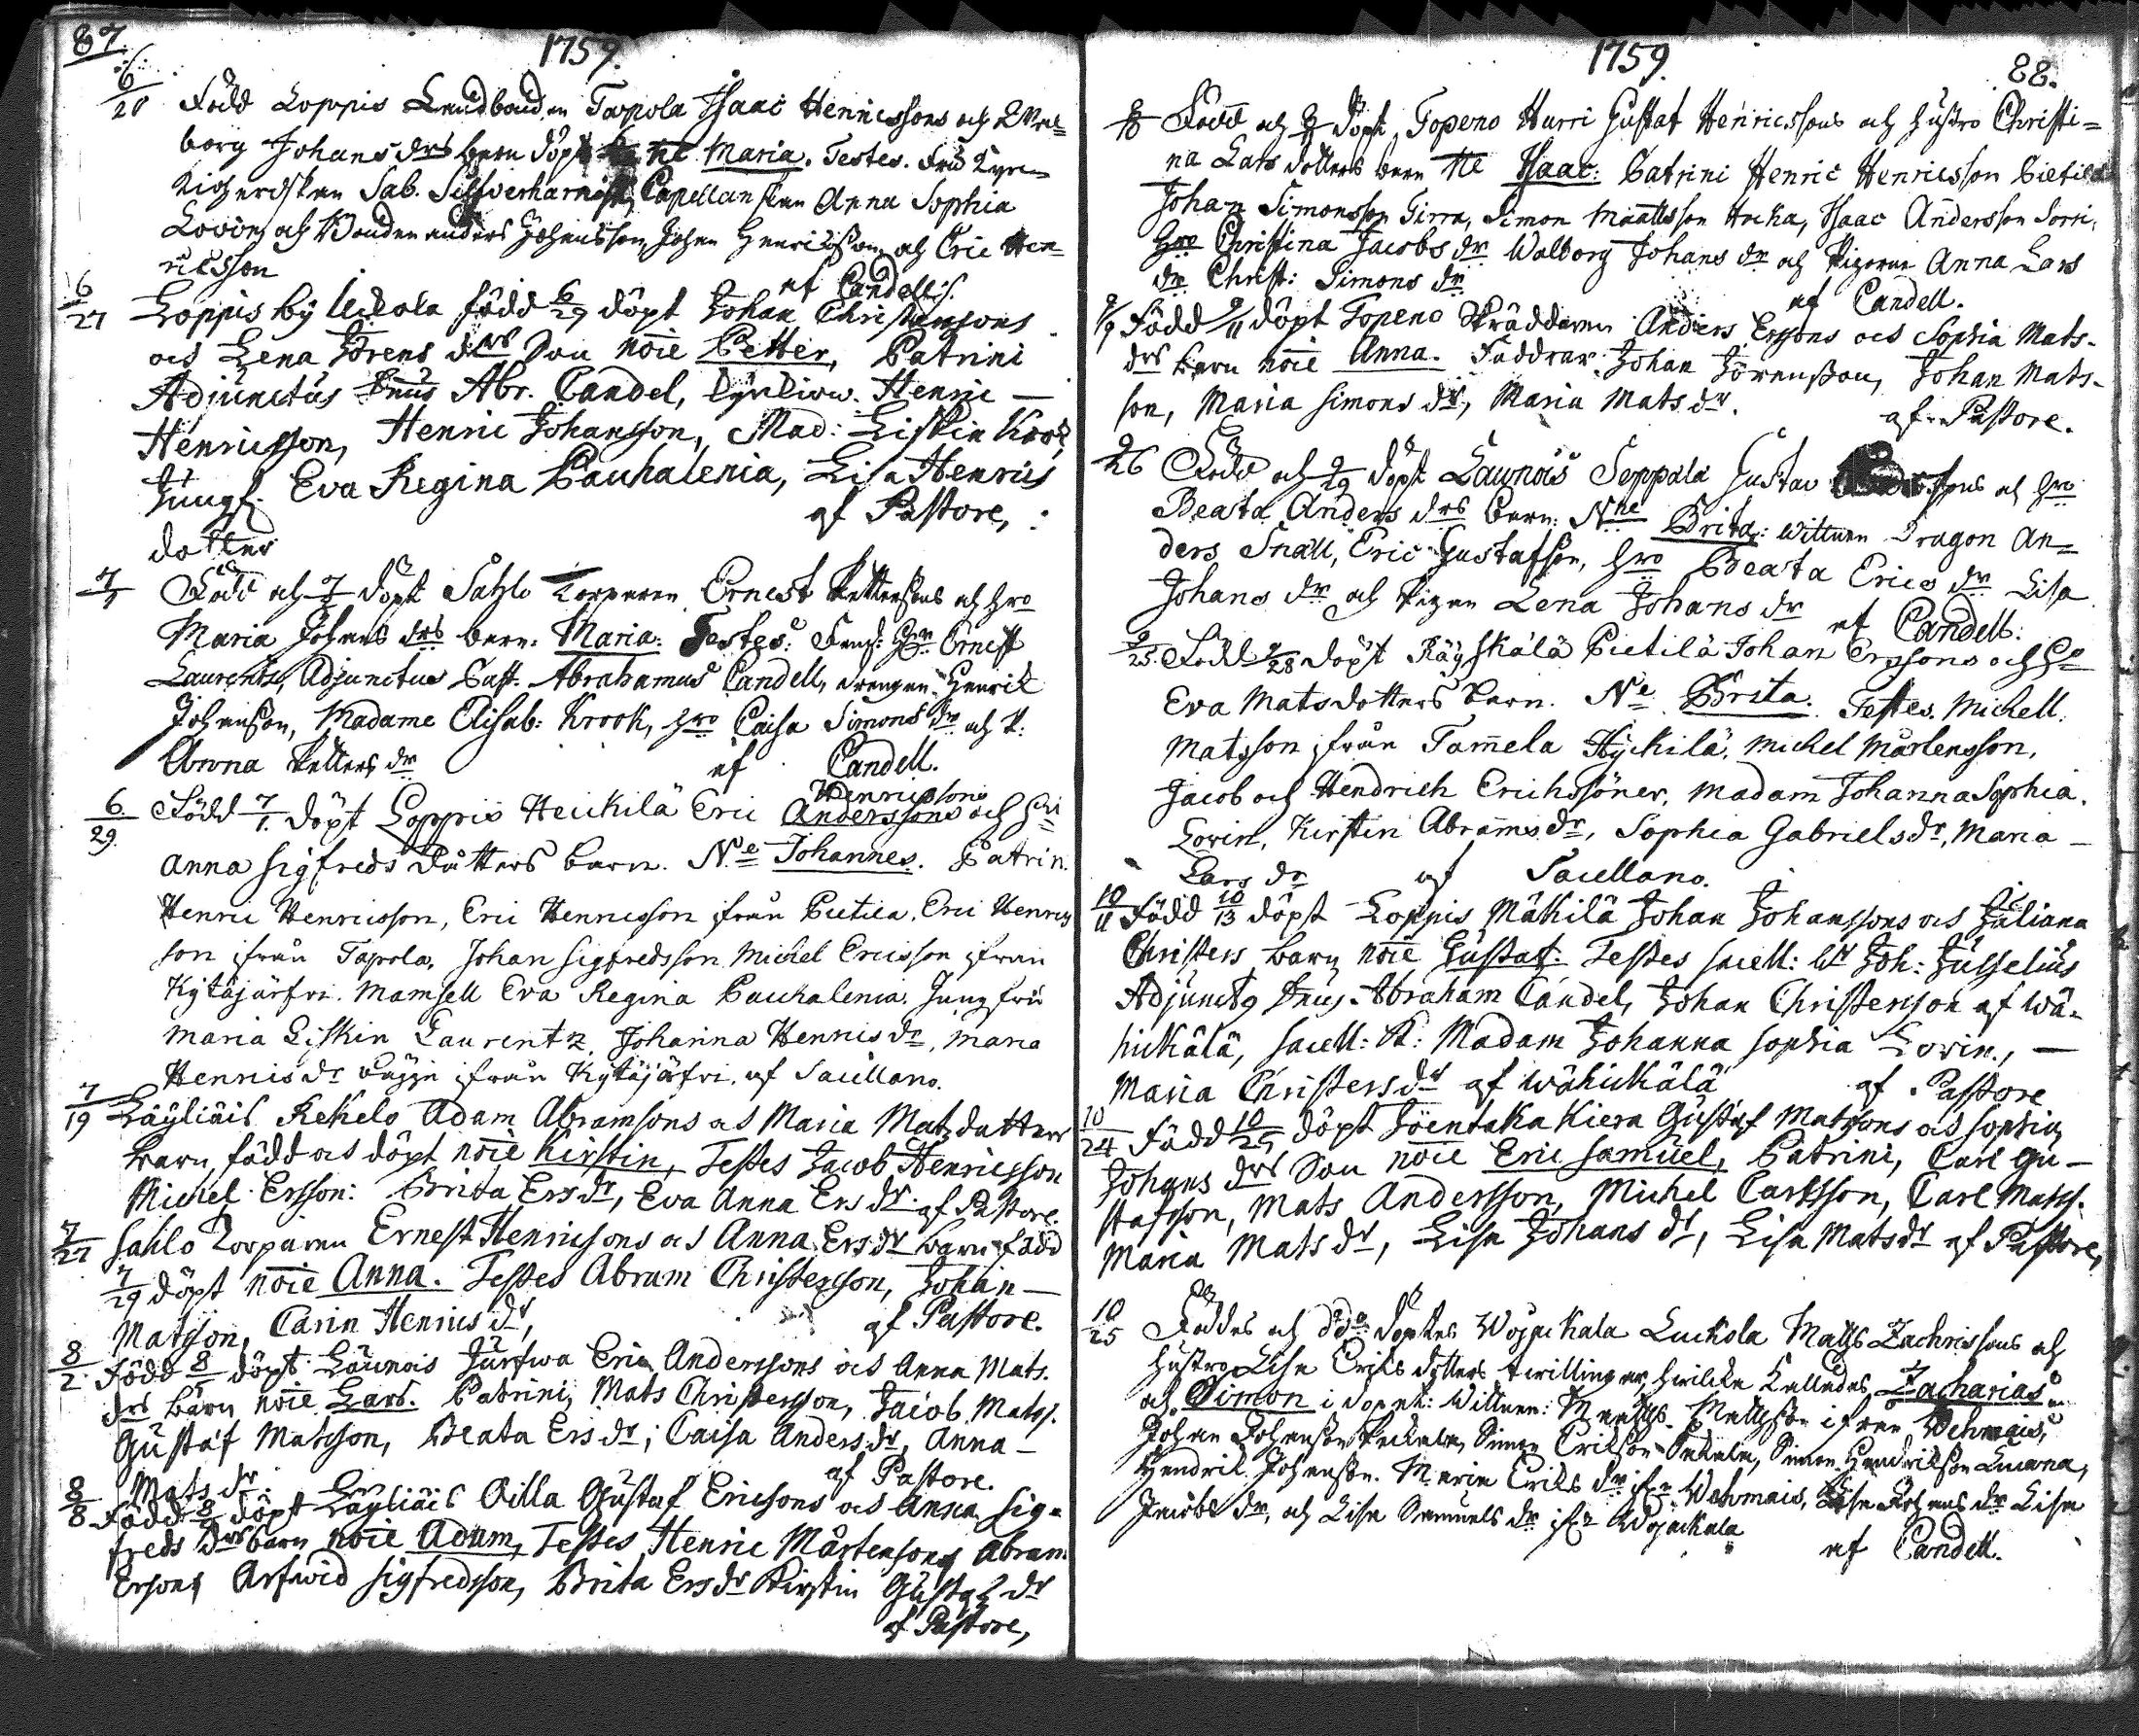 87.
1759.
6/20 Född Loppis Landbonden Tapola Isaac Henricssons och Wal=
borg Johans drs barn döpt Ne Maria. Testes. Fru Kyrko
Sab. Silfverharnisk, Capellanskan Anna Sophia
Lovin, och Bonden anders Johansson Johan Henriksson och Eric Hen=
ricsson
af Candell.
6/27 Loppis by Uckola född 6/29 döpt Johan Christersons
och Lena Jörens drs Son noïe Petter, Patrini
Adjunctus Dnus Abr. Candel, Henric —
Henricsson, Henric Johansson, Mad: Liskin Krok,
Jungf. Eva Regina Pauhalenia, Lisa Henrics
dotter
af Pastore,
7/1 Född och 7/ döpt Sahlo Torparen Ernest Pettersons och Hro
Maria Johans drs barn: Maria: Testes: Hr Ernest
Laurentz, Adjunctus Past: Abrahamus Candell, drengen Henrik
Johansson, Madame Elisab: Krook, Hro Caisa Simons dr och P:
Anna Petters dr
af Candell.
6/29. Född 7/1. döpt Loppis Heickilä Eric Anderssons och
Henricssons
Anna Sigfreds Dätters barn. Ne Johannes. Patrin.
Henric Henricsson, Eric Henricsson ifrån Pietila. Eric Henrics
son ifrån Tapola, Johan Sigfredsson Michel Ericsson ifrån
Kytäjärfvi. Mamsell Eva Regina Pauhalenia. Jungfru
Maria Liskin Laurentz, Johanna Henrics dr, Maria
Henrics dr bägge ifrån Kytäjärfvi. af Sacellano.
7/19 Läyliäis Kekelo Adam Abramsons och Maria Mats datters
barn, född och döpt noïe Kirstin, Testes Jacob Henricsson
Michel Ersson: Brita Ers dr, Eva Anna Ers dr. af Pastore.
7/27 Sahlo Torparen Ernest Henricsons och Anna Ers dr barn född
7/29 döpt noïe Anna. Testes Abram Christersson, Johan —
Matsson, Carin Henrics dr,
af Pastore.
8/2. Född 8/ döpt Läunois Jurfwa Eric Anderssons och Anna Mats
drs barn noïe Lars. Patrini, Mats Christersson, Jacob Mats.
Gustaf Matsson, Beata Ers dr, Caisa Anders dr, Anna —
Mats dr.
af Pastore.
8/8 Född 8/ döpt Läyliäis Ailla Gustaf Ericsons och Anna Sig=
freds drs barn noïe Adam, Testes Henric Mårtensons Abram
Ersons Arfwid Sigfredsson, Brita Ers dr Kirstin Gustaf dr
af Pastore,
1759.
88.
Född och döpt, Topeno Hurri Gustaf Henricssons och hustro Christi=
na Lars dotters barn Ne Isaac: Patrini Henric Henricsson Pietilä
Johan Simonsson Girra, Simon Maattsson Isaac Andersson
Hro Christina Jacobs dr Walborg Johans dr och Pigorne Anna Lars
dr Christ: Simons dr
af Candell.
9/9 Född 9/11 döpt Topeno Skräddaren Anders Ersons och Sophia Mats
drs barn noïe Anna. Faddrar: Johan Jörensson, Johan Mats-
son, Maria Simons dr, Maria Mats dr.
af Pastore.
9/26 Född och 9/29 döpt Launois Seppälä Gustav och Hro
Beata Anders drs barn: Nne Brita: wittnen Dragon An=
ders Snäll, Eric Gustafson, Hro Beata Erics dr Lisa
Johans dr och Pigan Lena Johans dr
af Candell:
9/25. Född 9/28 döpt Räyskälä Pietilä Johan Erssons och Ho
Eva Mats dotters barn. Ne Brita. Testes. Michell
Matsson ifrån Tamela Hyckilä, Michel Mårtensson,
Jacob och Hendrich Erichssöner, Madam Johanna Sophia
Lovin, Kirstin Abrams dr, Sophia Gabriels dr, Maria —
Lars dr
af Sacellano.
10/11 Född 10/13 döpt Loppis Mäkilä Johan Johanssons och Juliana
Christers barn noïe Gustaf. Testes Sacell: Joh: Jusselius
Adjunctg Dnus Abraham Candel, Johan Christerson af Wä-
hickälä, Sacell: Madam Johanna Sophia Lovin, —
Maria Christers dr af Wähickälä
af Pastore
10/24 Född 10/25 döpt Joentaka Kiera Gustaf Matssons och Sophia
Johans drs Son noïe Eric Samuel, Patrini, Carl Gu—
stafsson, Mats Andersson, Michel Carlsson, Carl Mats.
Maria Mats dr, Lisa Johans dr, Lisa Mats dr af Pastore,
10/25 Föddes och ddo döptes Wojackala Luckola Matts Zachrissons och
hustro Lisa Eriks dotters twillingar, hwilcka kalledes Zacharias
och Simon i dopet: Wittnen: Matts Mattsson ifrån Wehmais,
Johan Johansson Simon Eriksson Simon Hendriksson
Hendrik Johansson. Maria Eriks dr ifr. Wehmais, Lisa Johans dr Lisa
Jacobs dr, och Lisa Samuels dr ifr. Wojackala
af Candell.